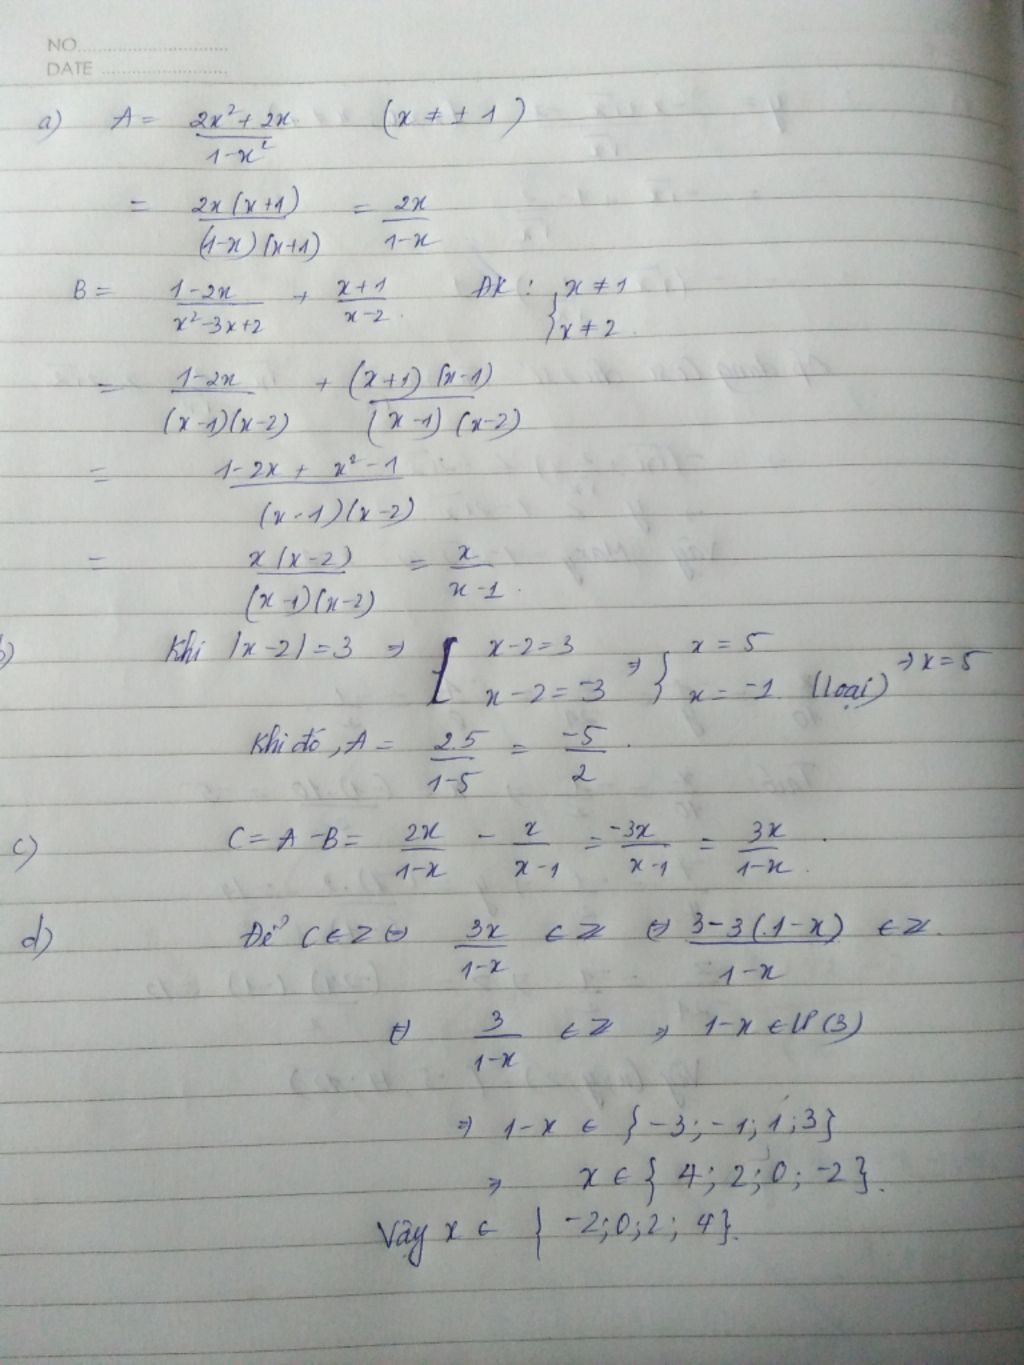 NO.
DATE
a) A = (2x² + 2x)/(1-x²) (x ≠ ± 1)
= (2x(x+1))/((1-x)(x+1)) = 2x/(1-x)
B = (1-2x)/(x²-3x+2) + (x+1)/(x-2). ĐK : { x ≠ 1 x ≠ 2.
= (1-2x)/((x-1)(x-2)) + ((x+1)(x-1))/((x-1)(x-2))
= (1-2x + x²-1)/((x-1)(x-2))
= (x(x-2))/((x-1)(x-2)) = x/(x-1).
b) Khi |x-2| = 3 ⇒ [ x-2=3 x-2=-3 ⇒ { x=5 x=-1 (loại) ⇒ x=5
Khi đó, A = 2.5/(1-5) = -5/2.
c) C = A - B = 2x/(1-x) - x/(x-1) = -3x/(x-1) = 3x/(1-x).
d) Để C ∈ Z ⇔ 3x/(1-x) ∈ Z ⇔ (3-3(1-x))/(1-x) ∈ Z.
⇔ 3/(1-x) ∈ Z ⇒ 1-x ∈ Ư(3)
⇒ 1-x ∈ {-3; -1; 1; 3}
⇒ x ∈ { 4; 2; 0; -2}.
Vậy x ∈ { -2; 0; 2; 4}.